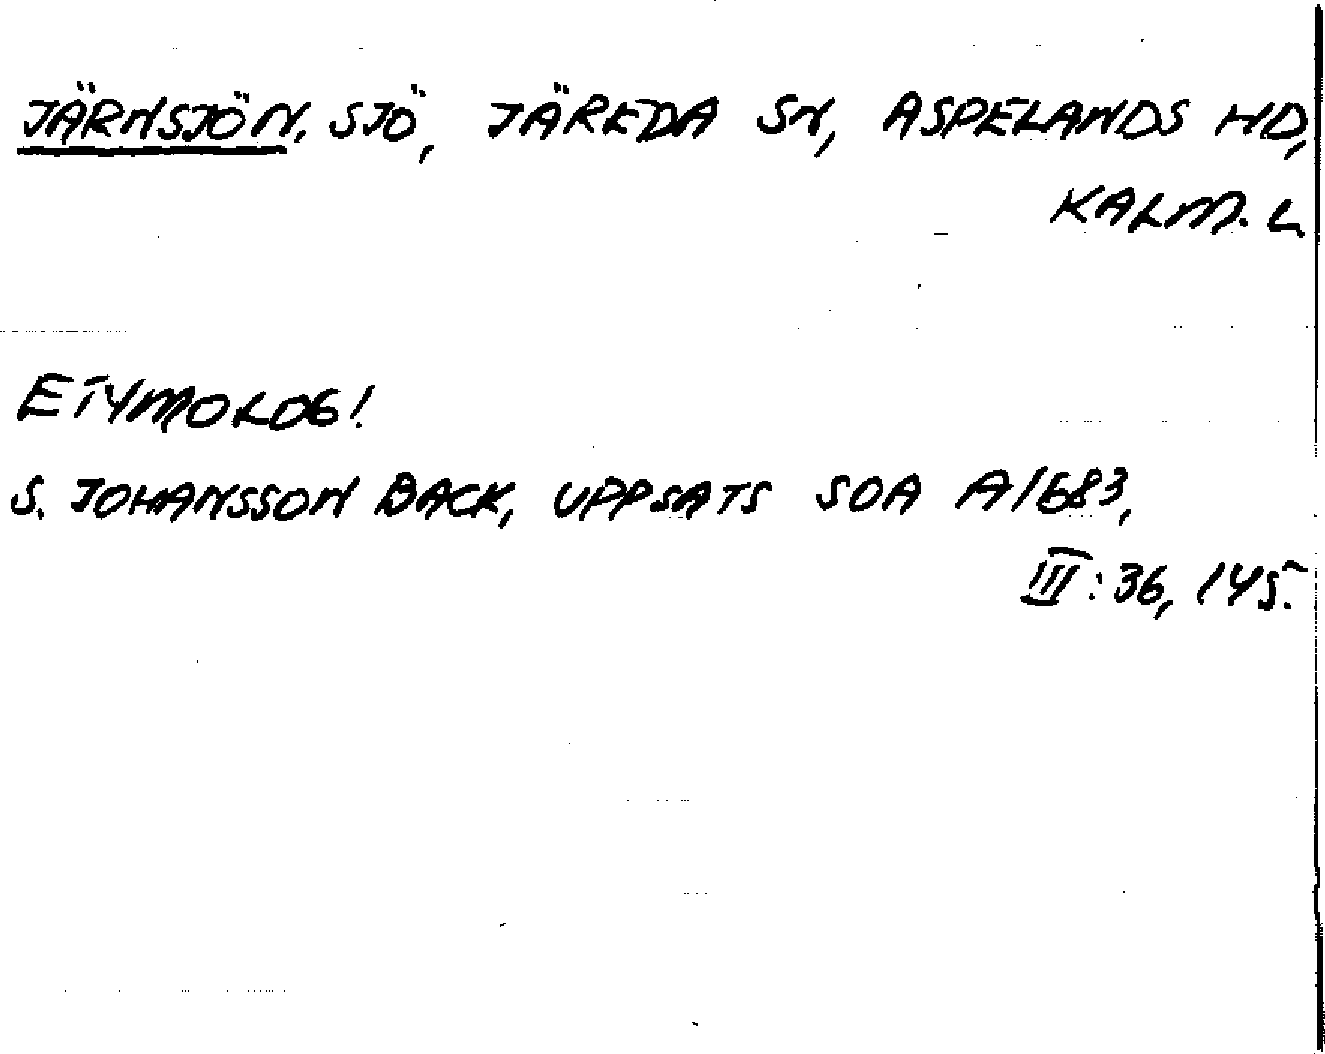 JÄRNSJÖN, SJÖ, JÄREDA SN, ASPELANDS HD,
KALM. L
ETYMOLOG!
S. JOHANSSON BACK, UPPSATS SOA A1683,
III: 36, 145.